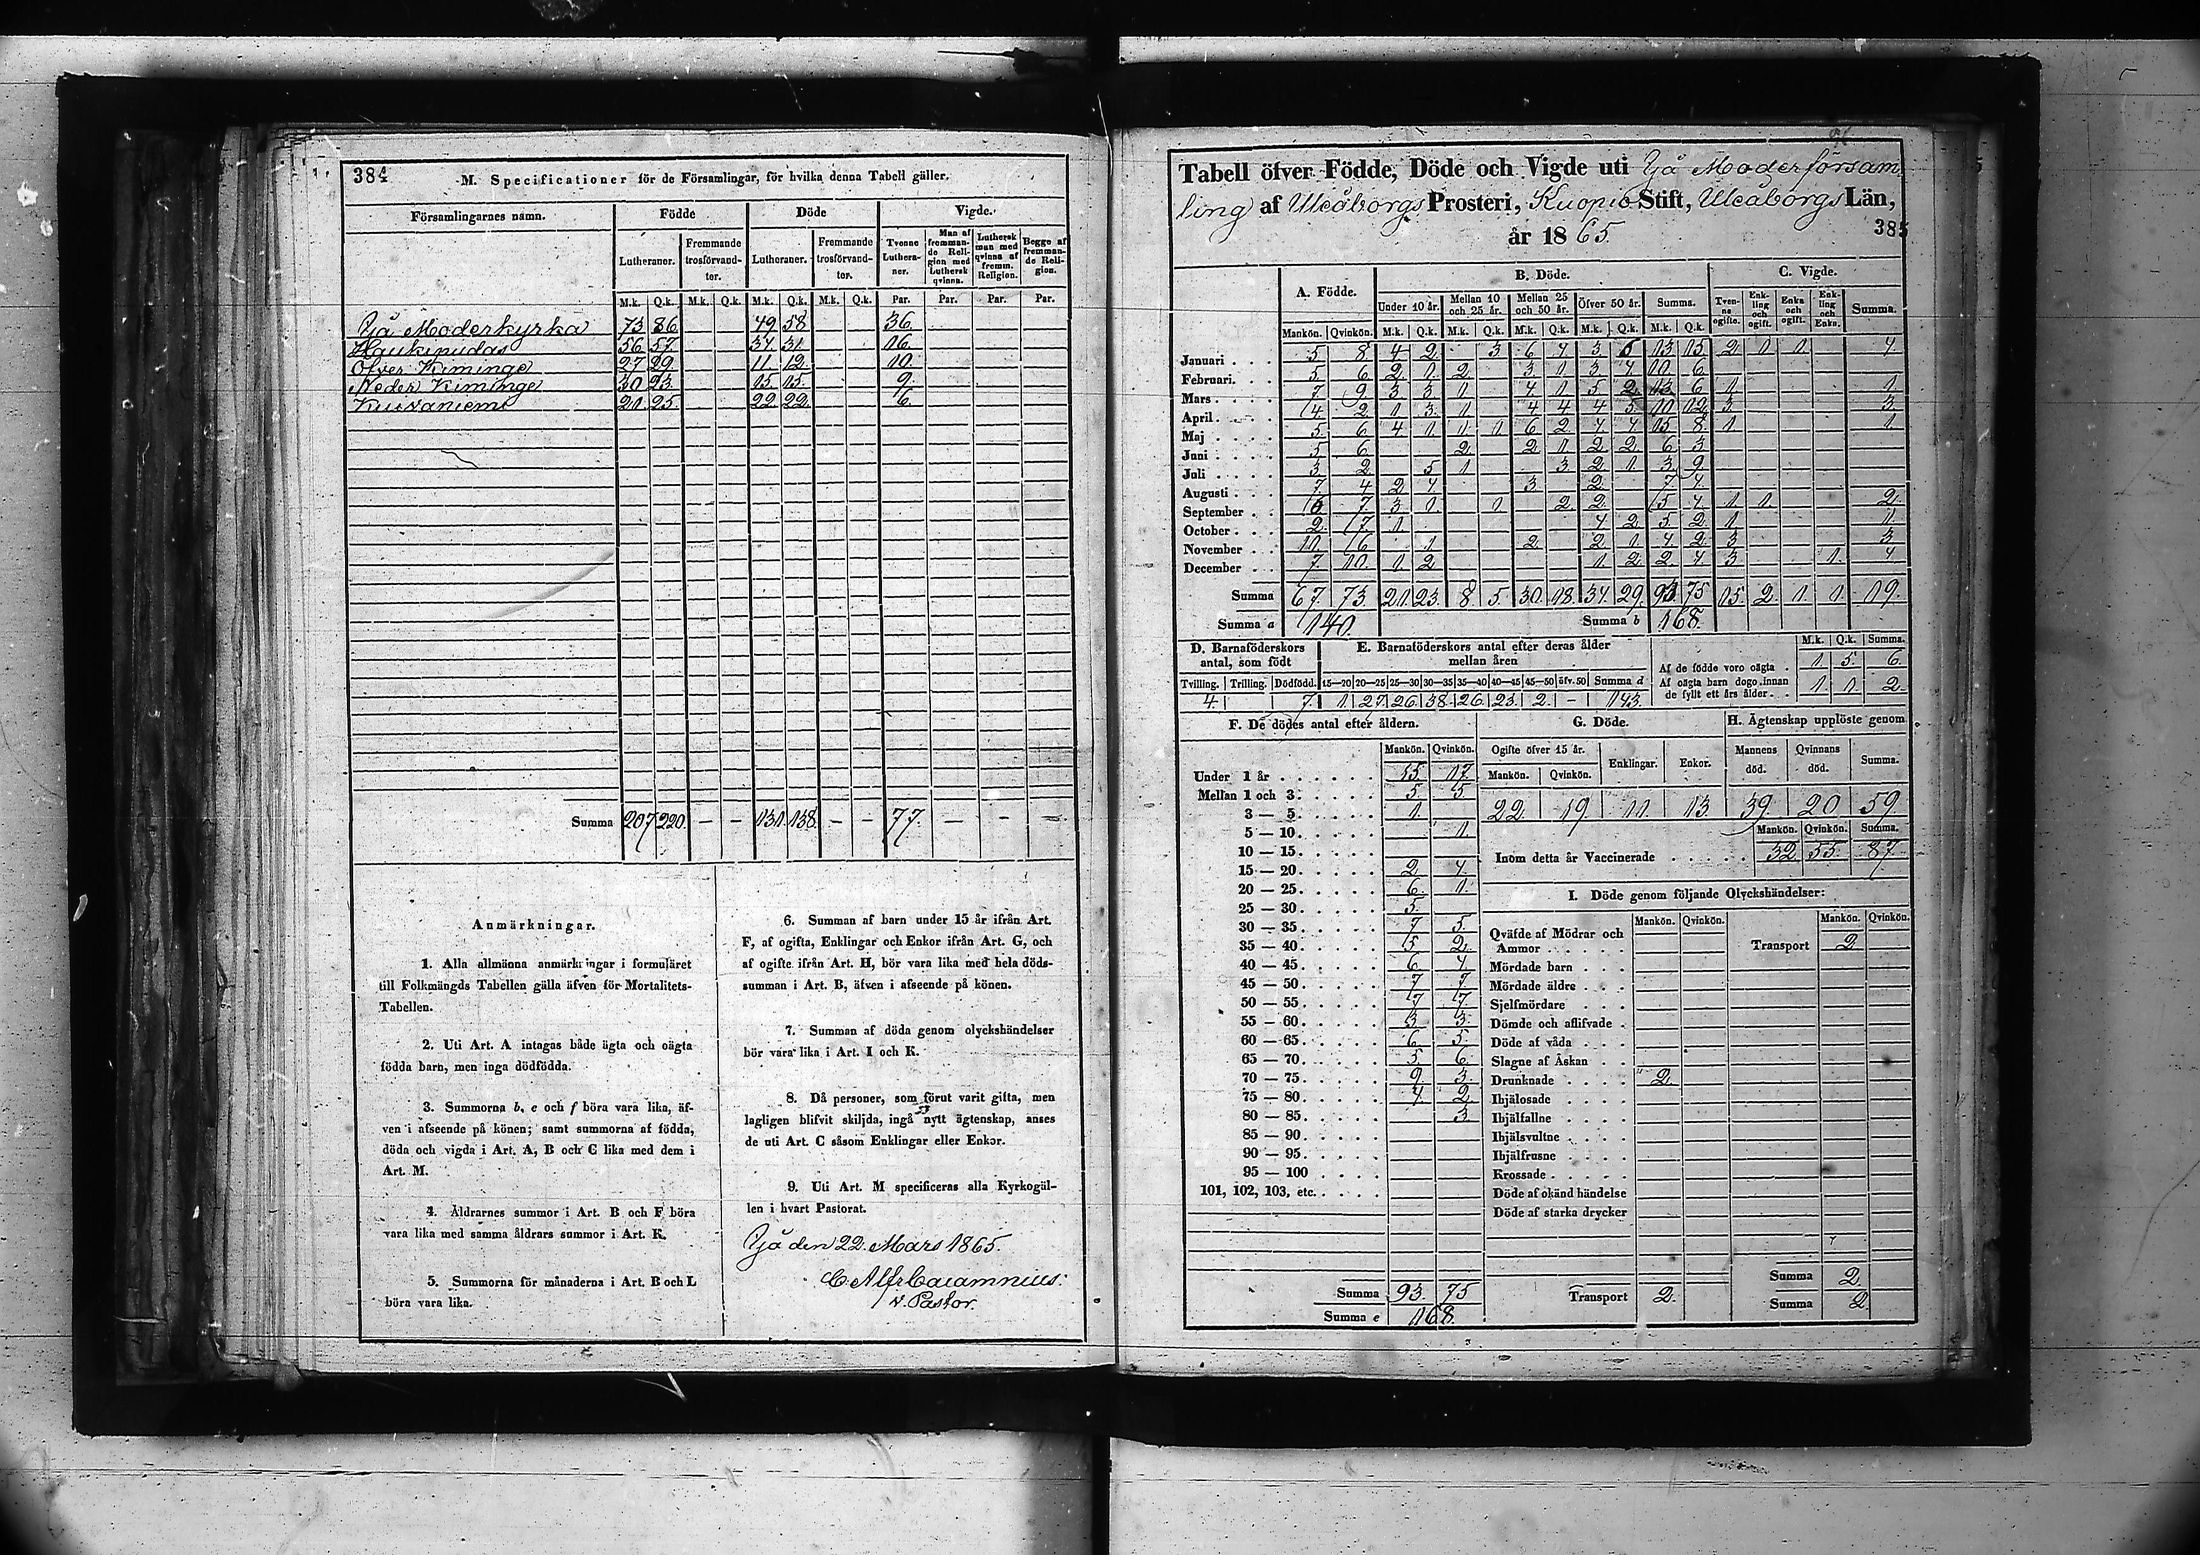 384
M. Specificationer för de Församlingar, för hvilka denna Tabell gäller.
Församlingarnes namn. Födde Döde Vigde.
Lutheraner. Fremmande trosförvandter. Lutheraner. Fremmande trosförvandter. Tvenne Lutheraner. Man af fremmande Religion med Luthersk qvinna. Luthersk man med qvinna af fremm. Religion. Begge af fremmande Religion.
M.k. Q.k. M.k. Q.k. M.k. Q.k. M.k. Q.k. Par. Par. Par. Par.
Ijå Moderkyrka 73 86 49 58 36.
Haukipudas 56 57 34 31 16.
Öfver Kiminge 27 29 11 12 10.
Neder Kiminge 30 23 15 15. 9.
Kuivaniemi 21 25. 22 22. 6.
Summa 207 220. — — 131 138. — — 77. — — —
Anmärkningar.
1. Alla allmänna anmärkningar i formuläret
till Folkmängds Tabellen gälla äfven för Mortalitets-
Tabellen.
2. Uti Art. A intagas både ägta och oägta
födda barn, men inga dödfödda.
3. Summorna b, e och f böra vara lika, äf-
ven i afseende på könen; samt summorna af födda,
döda och vigda i Art. A, B och C lika med dem i
Art. M.
4. Åldrarnes summor i Art. B och F böra
vara lika med samma åldrars summor i Art. K.
5. Summorna för månaderna i Art. B och L
böra vara lika.
6. Summan af barn under 15 år ifrån Art.
F, af ogifta, Enklingar och Enkor ifrån Art. G, och
af ogifte ifrån Art. H, bör vara lika med hela döds-
summan i Art. B, äfven i afseende på könen.
7. Summan af döda genom olyckshändelser
bör vara lika i Art. I och K.
8. Då personer, som förut varit gifta, men
lagligen blifvit skiljda, ingå nytt ägtenskap, anses
de uti Art. C såsom Enklingar eller Enkor.
9. Uti Art. M specificeras alla Kyrkogäl-
len i hvart Pastorat.
Ijå den 22. Mars 1865.
v. Pastor.
Tabell öfver Födde, Döde och Vigde uti Ijå Moderförsam
ling af Uleåborgs Prosteri, Kuopio Stift, Uleåborgs Län,
år 1865.
385
A. Födde. B. Döde. C. Vigde.
Under 10 år. Mellan 10 och 25 år. Mellan 25 och 50 år. Öfver 50 år. Summa. Tvenne ogifte. Enkling och ogift. Enka och ogift. Enkling och Enka. Summa.
Mankön. Qvinkön. M.k. Q.k. M.k. Q.k. M.k. Q.k. M.k. Q.k. M.k. Q.k.
Januari 5 8 4 2 3 6 4 3 6 13 15 2 1 1 4
Februari 5 6 2 1 2 3 1 3 4 10 6
Mars 7 9 3 3 1 4 1 5 2 13 6 1 1.
April 4 2 1 3 1 4 4 4 5 10 12 3 3.
Maj 5 6 4 1 1 1 6 2 4 4 15 8 1 1.
Juni 5 6 2 2 1 2 2 6 3
Juli 3 2 5 1 3 2 1 3 9
Augusti 7 4 2 4 3 2 7 4
September 6 7 3 1 1 2 2 5 4 1 1 2
October 2 7 1 4 2 5 2 1 1
November 11 6 1 2 2 1 4 2 3 3
December 7 10 1 2 1 2 2 4 3 1 4
Summa 67. 73. 21. 23. 8. 5. 30. 18. 34. 29. 93 75 15. 2. 1 1 19.
Summa a 140. Summa b 168.
D. Barnaföderskors antal, som födt
E. Barnaföderskors antal efter deras ålder mellan åren
M.k. Q.k. Summa.
Af de födde voro oägta 1 5. 6.
Af oägta barn dogo innan de fyllt ett års ålder 1 1 2.
Tvilling. Trilling. Dödfödd. 15—20 20—25 25—30 30—35 35—40 40—45 45—50 öfv. 50 Summa d
4. 7. 1. 27. 26. 38. 26. 23. 2. — 143.
F. De dödes antal efter åldern.
Mankön. Qvinkön.
Under 1 år 15. 17.
Mellan 1 och 3. 5 5
3 — 5. 1.
5 — 10. 1.
10 — 15.
15 — 20. 2. 4.
20 — 25. 6. 1.
25 — 30. 5.
30 — 35. 7 5.
35 — 40. 5 2.
40 — 45. 6 4.
45 — 50. 7 7.
50 — 55. 7 7.
55 — 60. 3 3.
60 — 65. 6. 5
65 — 70. 5 6.
70 — 75. 9. 3.
75 — 80. 4. 2.
80 — 85. 3.
85 — 90.
90 — 95.
95 — 100
101, 102, 103, etc.
Summa 93. 75
Summa e 168.
G. Döde.
Ogifte öfver 15 år. Enklingar. Enkor.
Mankön. Qvinkön.
22. 19. 11. 13.
H. Ägtenskap upplöste genom
Mannens död. Qvinnans död. Summa.
39. 20 59
Mankön. Qvinkön. Summa.
Inom detta år Vaccinerade 32 55. 87.
I. Döde genom följande Olyckshändelser:
Mankön. Qvinkön. Mankön. Qvinkön.
Qväfde af Mödrar och Ammor Transport 2
Mördade barn
Mördade äldre
Sjelfmördare
Dömde och aflifvade
Döde af våda
Slagne af Åskan
Drunknade 2.
Ihjälosade
Ihjälfallne
Ihjälsvultne
Ihjälfrusne
Krossade
Döde af okänd händelse
Döde af starka drycker
Summa 2
Transport 2. Summa 2.